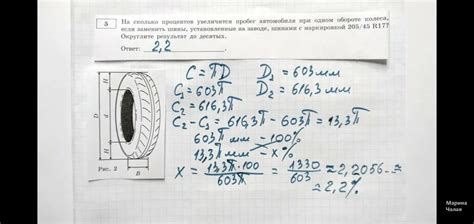 5
На сколько процентов увеличится пробег автомобиля при одном обороте колеса,
если заменить шины, установленные на заводе, шинами с маркировкой 205/45 R17?
Округлите результат до десятых.
Ответ: 2,2
C = πD D₁ = 603 мм
C₁ = 603π D₂ = 616,3 мм
C₂ = 616,3π
C₂ - C₁ = 616,3π - 603π = 13,3π
603π мм — 100%
13,3π мм — x%
X = 13,3π·100 / 603π = 1330 / 603 ≈ 2,2056... ≈
≈ 2,2%
H
D
d
H
B
Рис. 2
Марина
Чалая